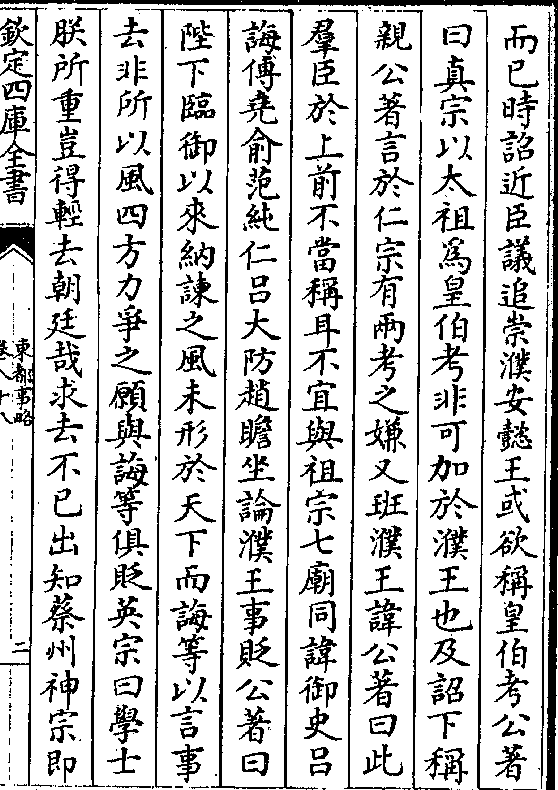 而已時詔近臣議追崇濮安懿王或欲稱皇伯考公著
曰真宗以太祖爲皇伯考非可加於濮王也及詔下稱
親公著言於仁宗有兩考之嫌又班濮王諱公著曰此
羣臣於上前不當稱耳不宜與祖宗七廟同諱御史呂
誨傅堯俞范純仁呂大防趙瞻坐論濮王事貶公著曰
陛下臨御以來納諫之風未形於天下而誨等以言事
去非所以風四方力爭之願與誨等俱貶英宗曰學士
朕所重豈得輕去朝廷哉求去不已出知蔡州神宗即
欽定四庫全書
東都事略
卷八十八
二